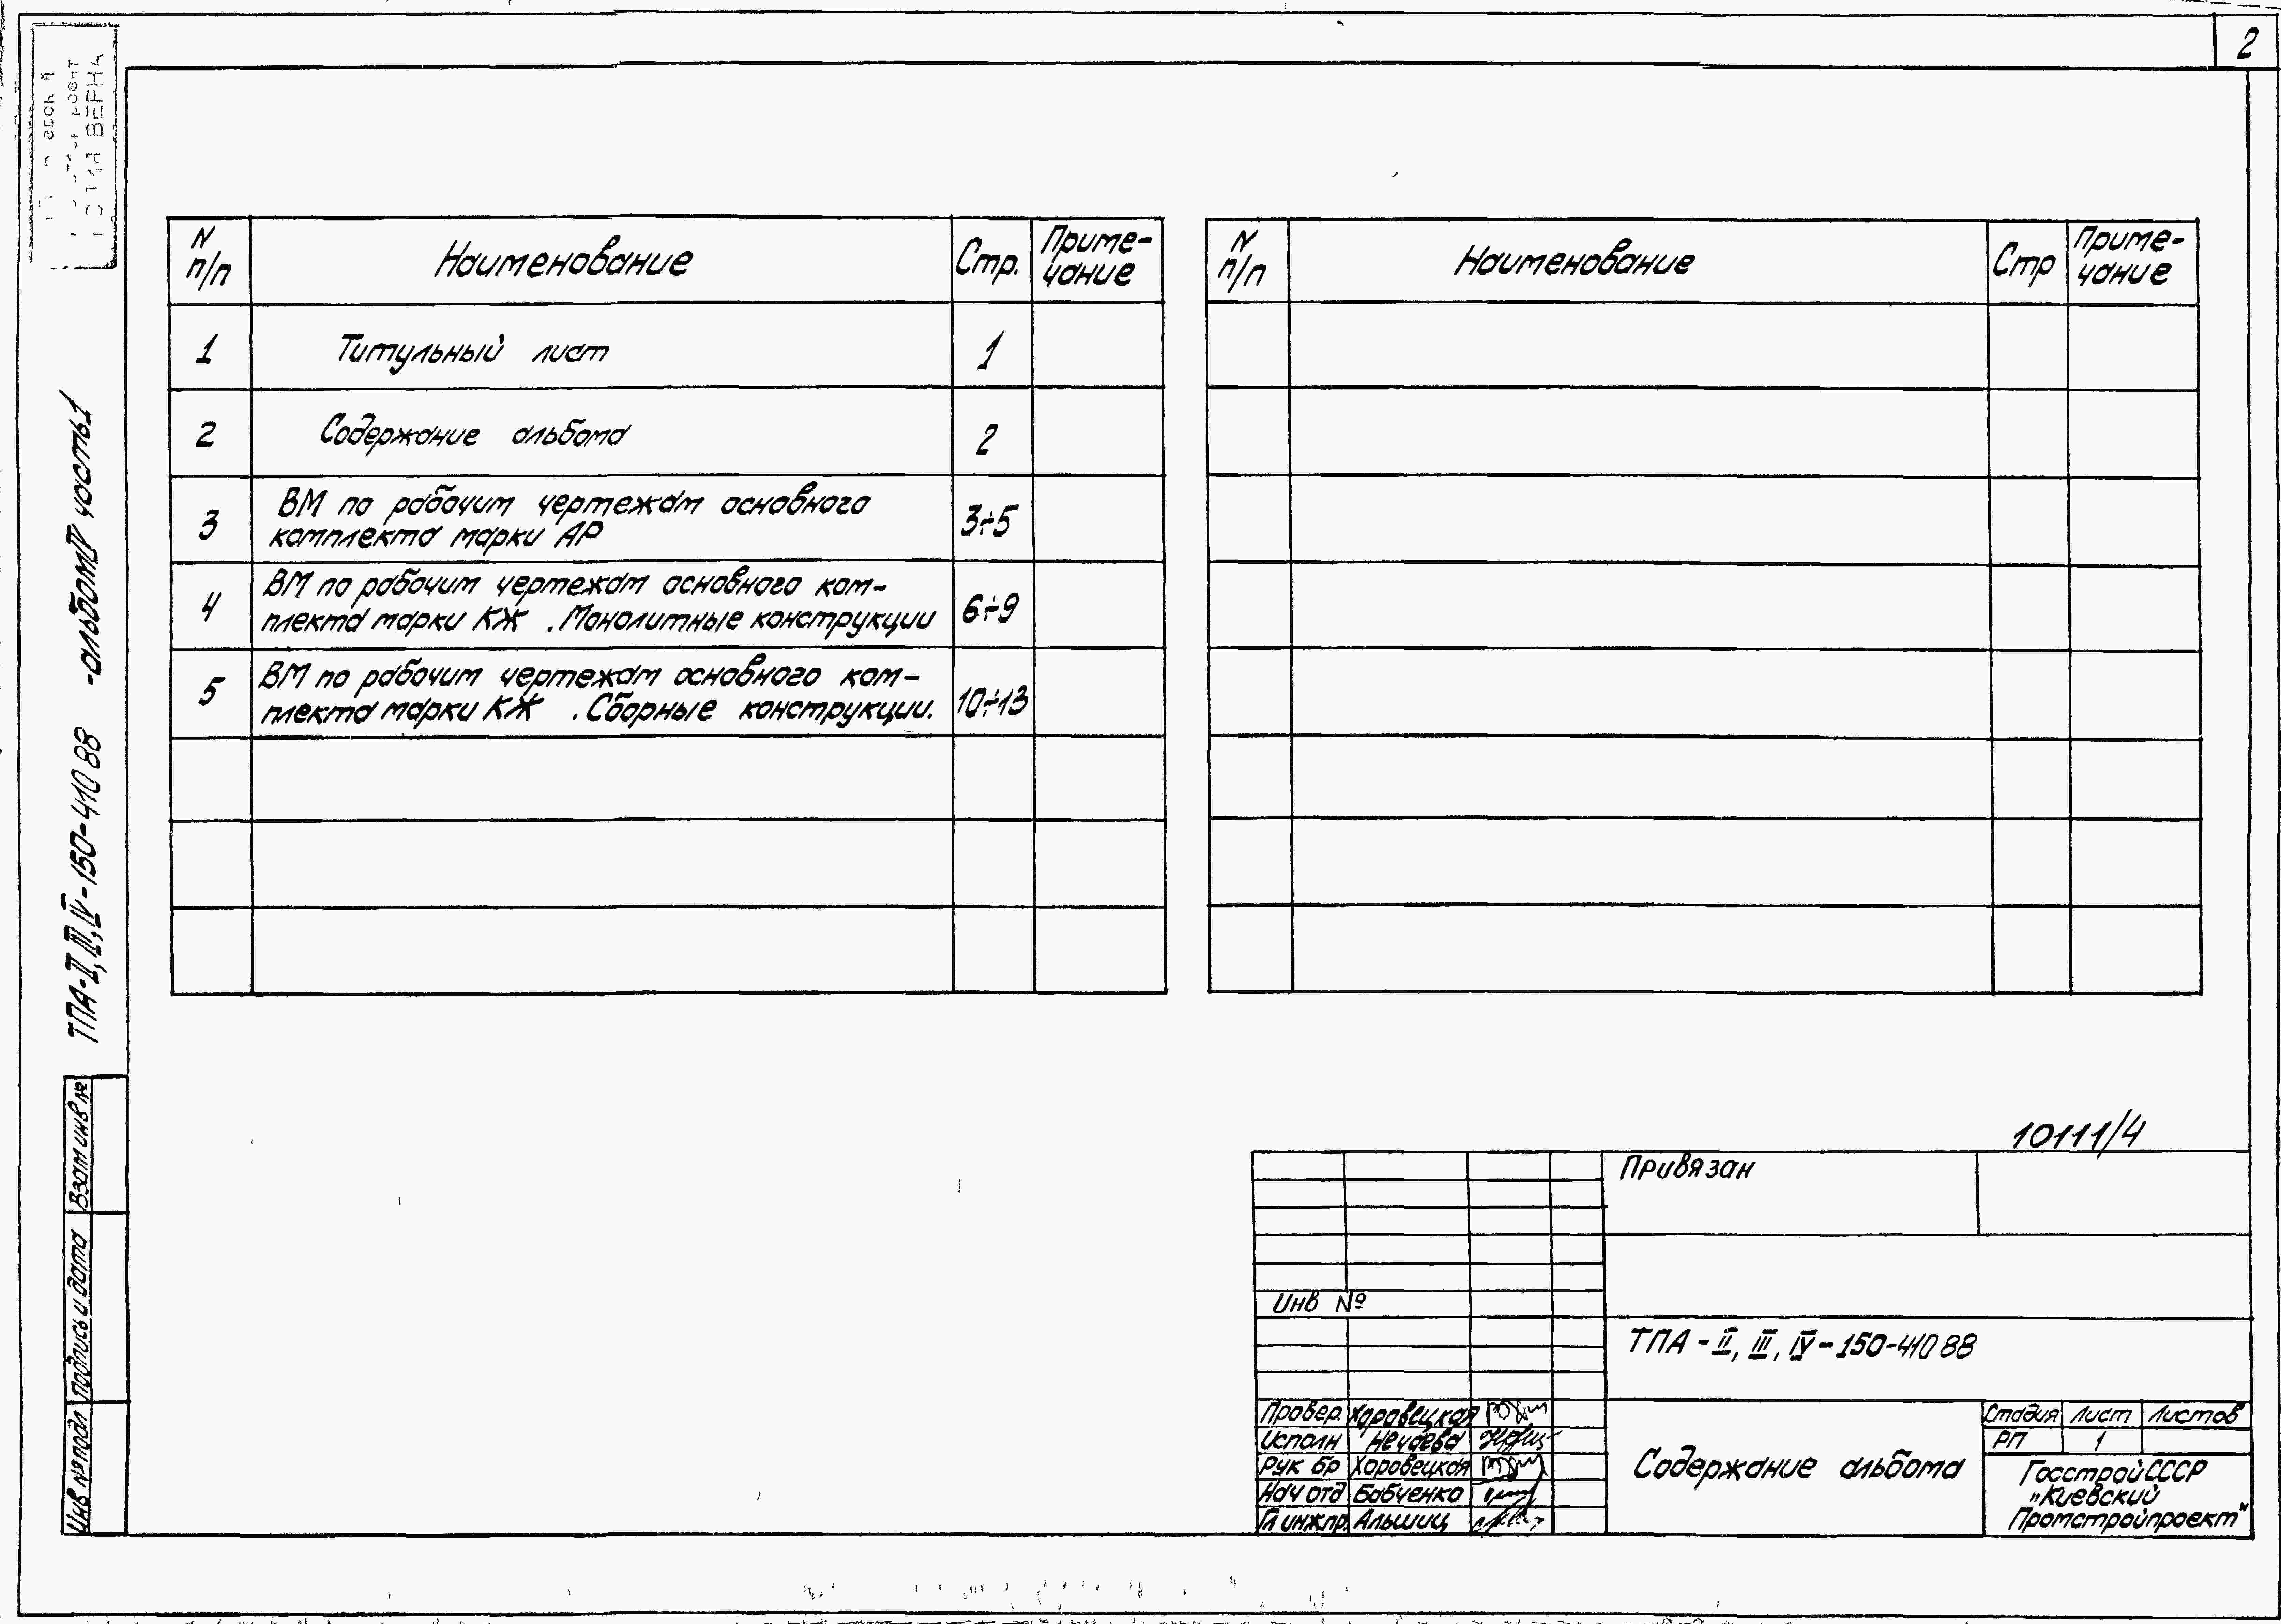 2
КОПИЯ ВЕРНА
ТПА-II, III, IV-150-410 88 -альбом IV часть 1
N п/п Наименование Стр. Приме-
чание
1 Титульный лист 1
2 Содержание альбома 2
3 ВМ по рабочим чертежам основного
комплекта марки АР 3÷5
4 ВМ по рабочим чертежам основного ком-
плекта марки КЖ . Монолитные конструкции 6÷9
5 ВМ по рабочим чертежам основного ком-
плекта марки КЖ . Сборные конструкции. 10÷13
N п/п Наименование Стр Приме-
чание
Взам инв №
Подпись и дата
Инв № подл
10111/4
Привязан
Инв №
ТПА - II, III, IV - 150-410 88
Провер. Хоровецкая
Исполн Нечаева
Рук бр Хоровецкая
Нач отд Бабченко
Гл инж пр. Альшиц
Содержание альбома
Стадия Лист Листов
РП 1
Госстрой СССР
"Киевский
Промстройпроект"